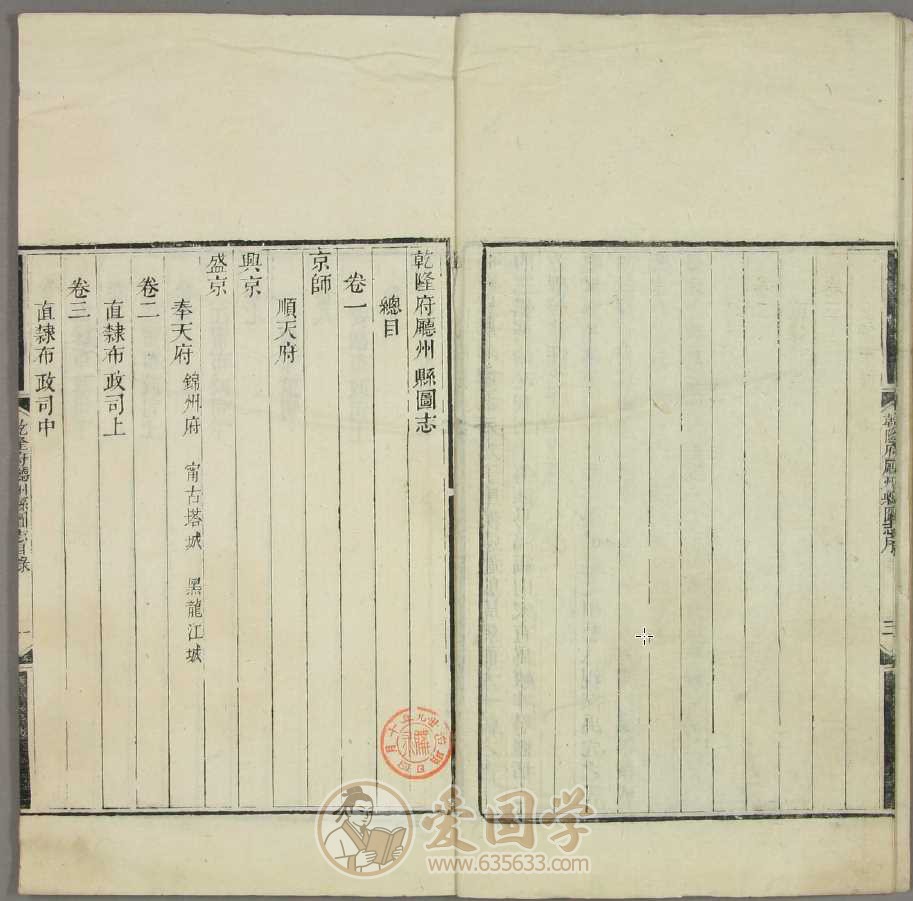 乾隆府廳州縣圖志序
三
乾隆府廳州縣圖志
總目
卷一
京師
順天府
興京
盛京
奉天府 錦州府 甯古塔城 黑龍江城
卷二
直隸布政司上
卷三
直隸布政司中
乾隆府廳州縣圖志目錄
一
爱国学
www.635633.com